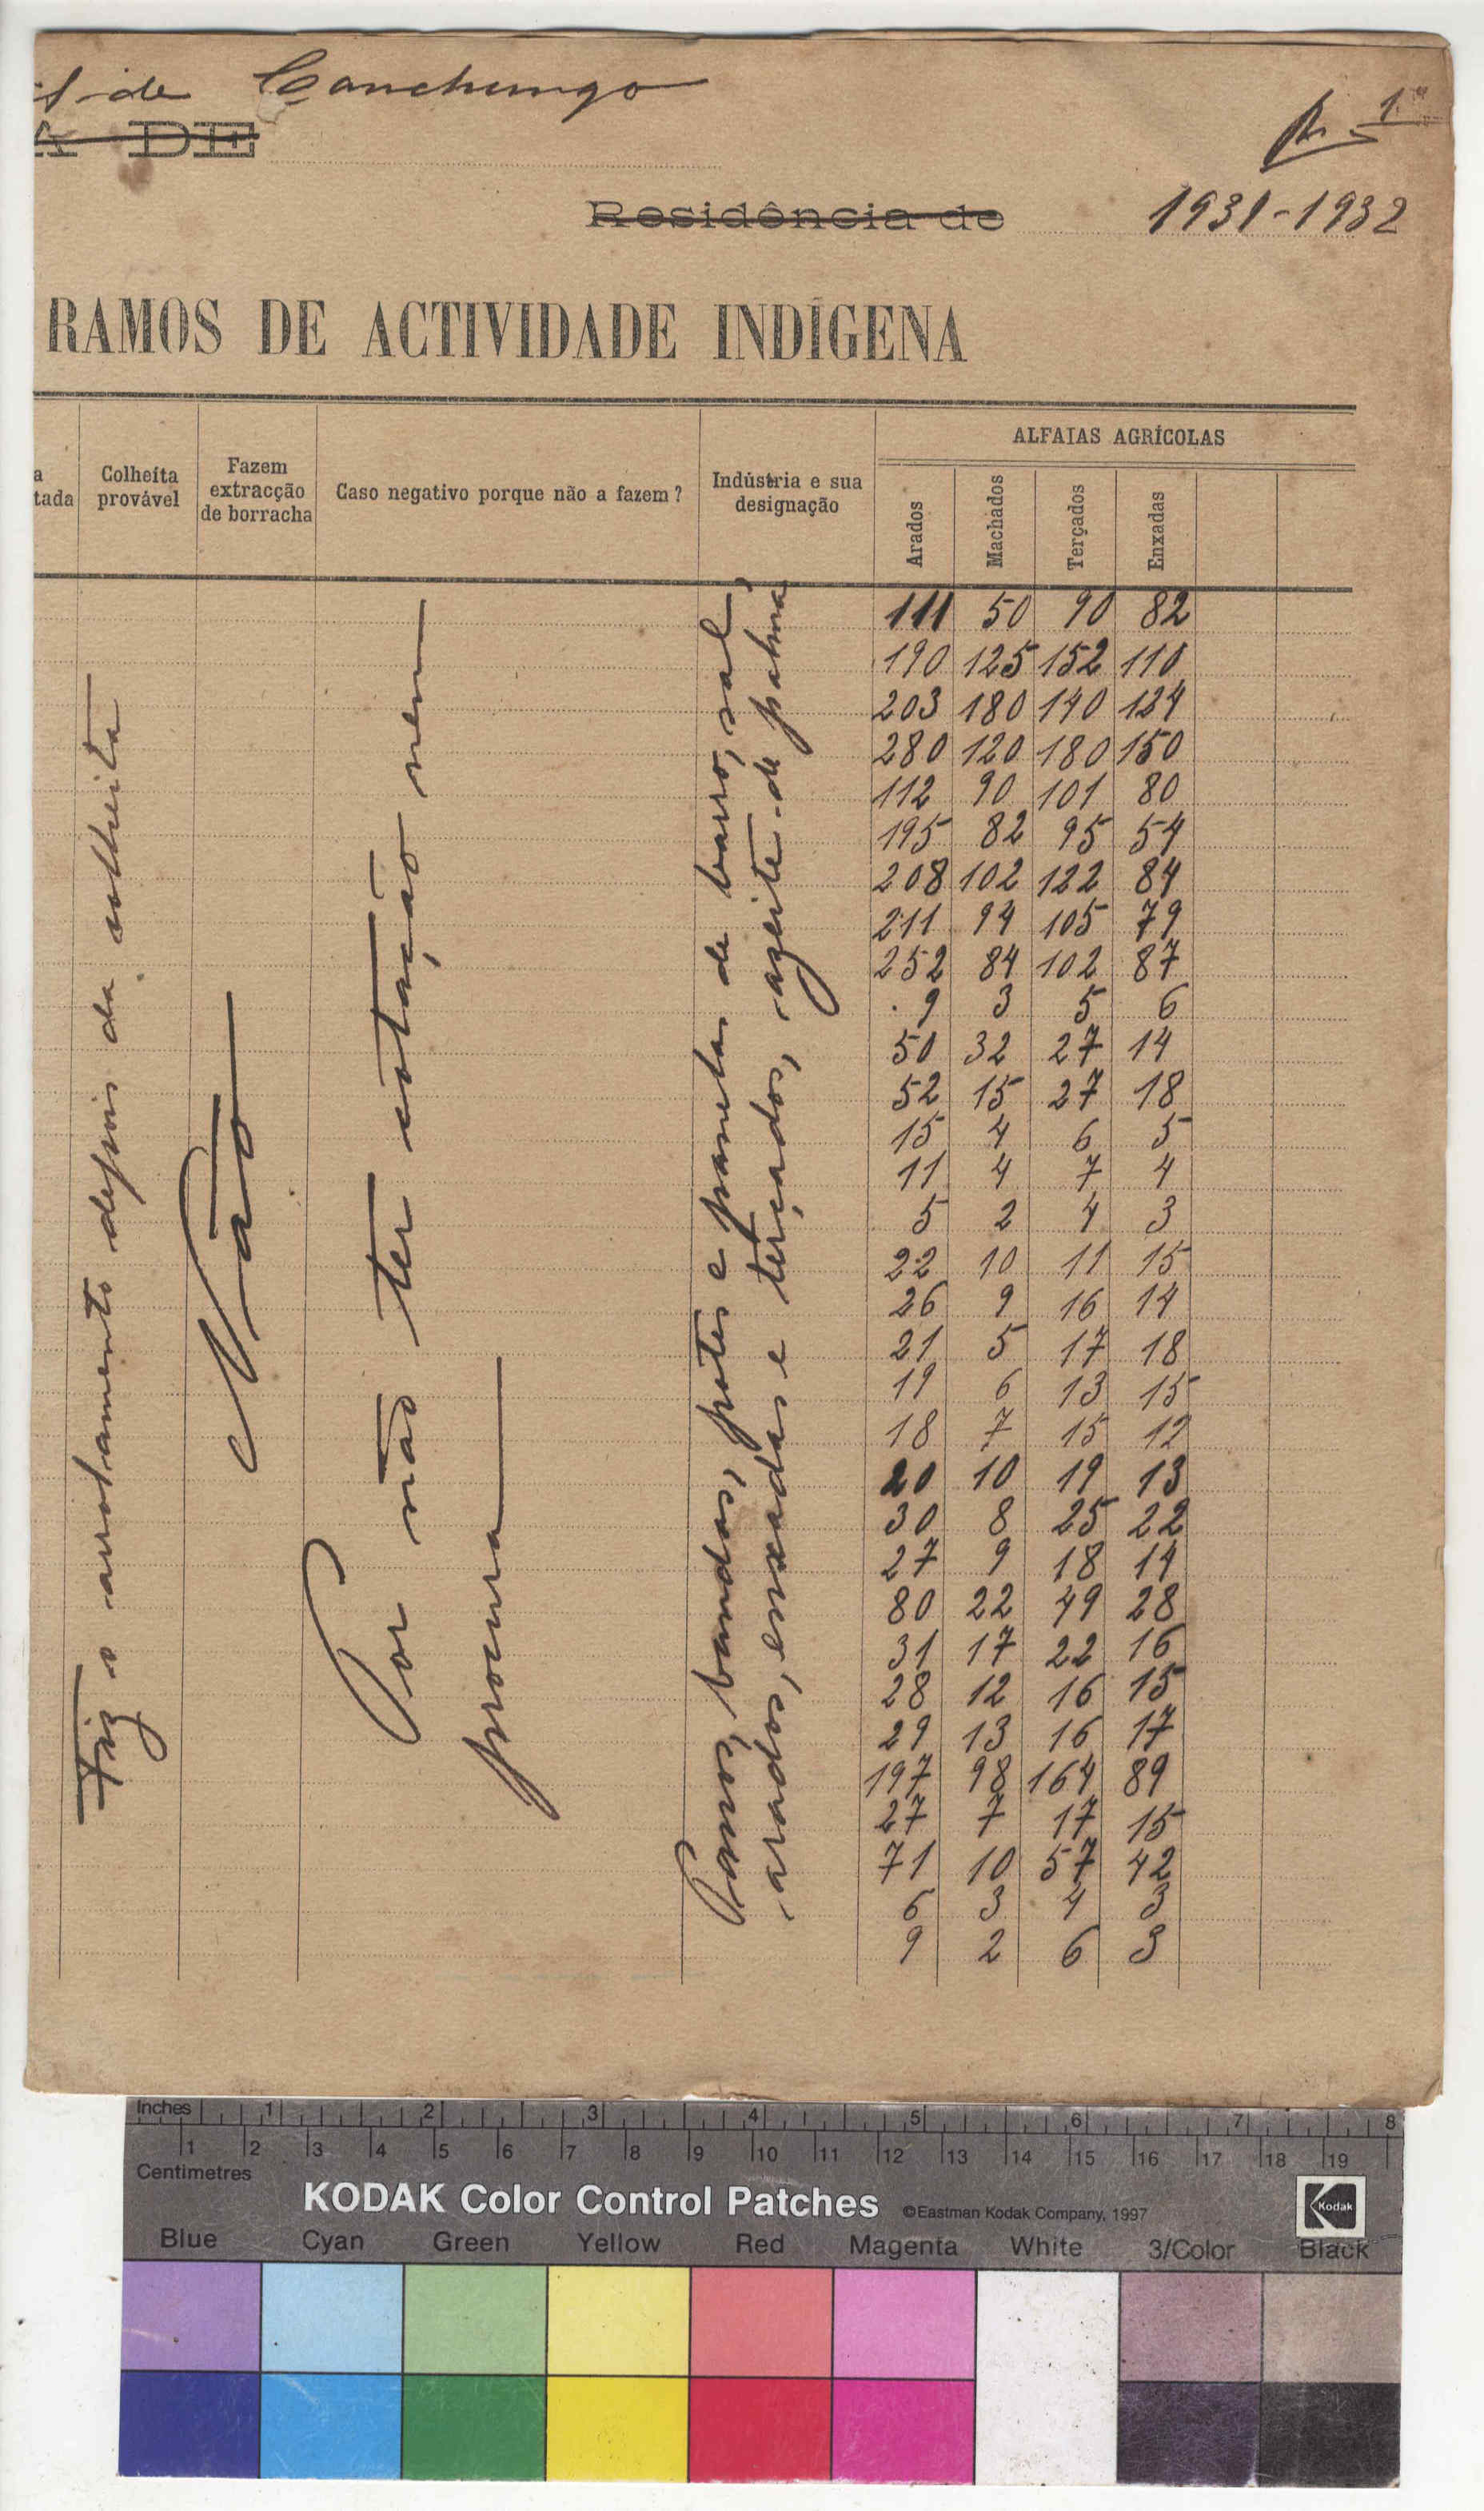 de Canchungo
A DE
1ª
Residência de
1931-1932
RAMOS DE ACTIVIDADE INDÍGENA
a
tada
Colheita
provável
Fazem
extracção
de borracha
Caso negativo porque não a fazem?
Indústria e sua
designação
ALFAIAS AGRÍCOLAS
Arados Machados Terçados Enxadas
Fiz o arrolamento depois da colheita
Não
Por não ter cotação nem
procura
Panos, bandas, potes e panelas de barro, sal,
arados, enxadas e terçados, azeite de palma
111 50 90 82
190 125 152 110
203 180 140 124
280 120 180 150
112 90 101 80
195 82 95 54
208 102 122 84
211 94 105 79
252 84 102 87
9 3 5 6
50 32 27 14
52 15 27 18
15 4 6 5
11 4 7 4
5 2 4 3
22 10 11 15
26 9 16 14
21 5 17 18
19 6 13 15
18 7 15 12
20 10 19 13
30 8 25 22
27 9 18 14
80 22 49 28
31 17 22 16
28 12 16 15
29 13 16 17
197 98 164 89
27 7 17 15
71 10 57 42
6 3 4 3
9 2 6 3
Inches 1 2 3 4 5 6 7 8
1 2 3 4 5 6 7 8 9 10 11 12 13 14 15 16 17 18 19
Centimetres
KODAK Color Control Patches ©Eastman Kodak Company, 1997 Kodak
Blue Cyan Green Yellow Red Magenta White 3/Color Black